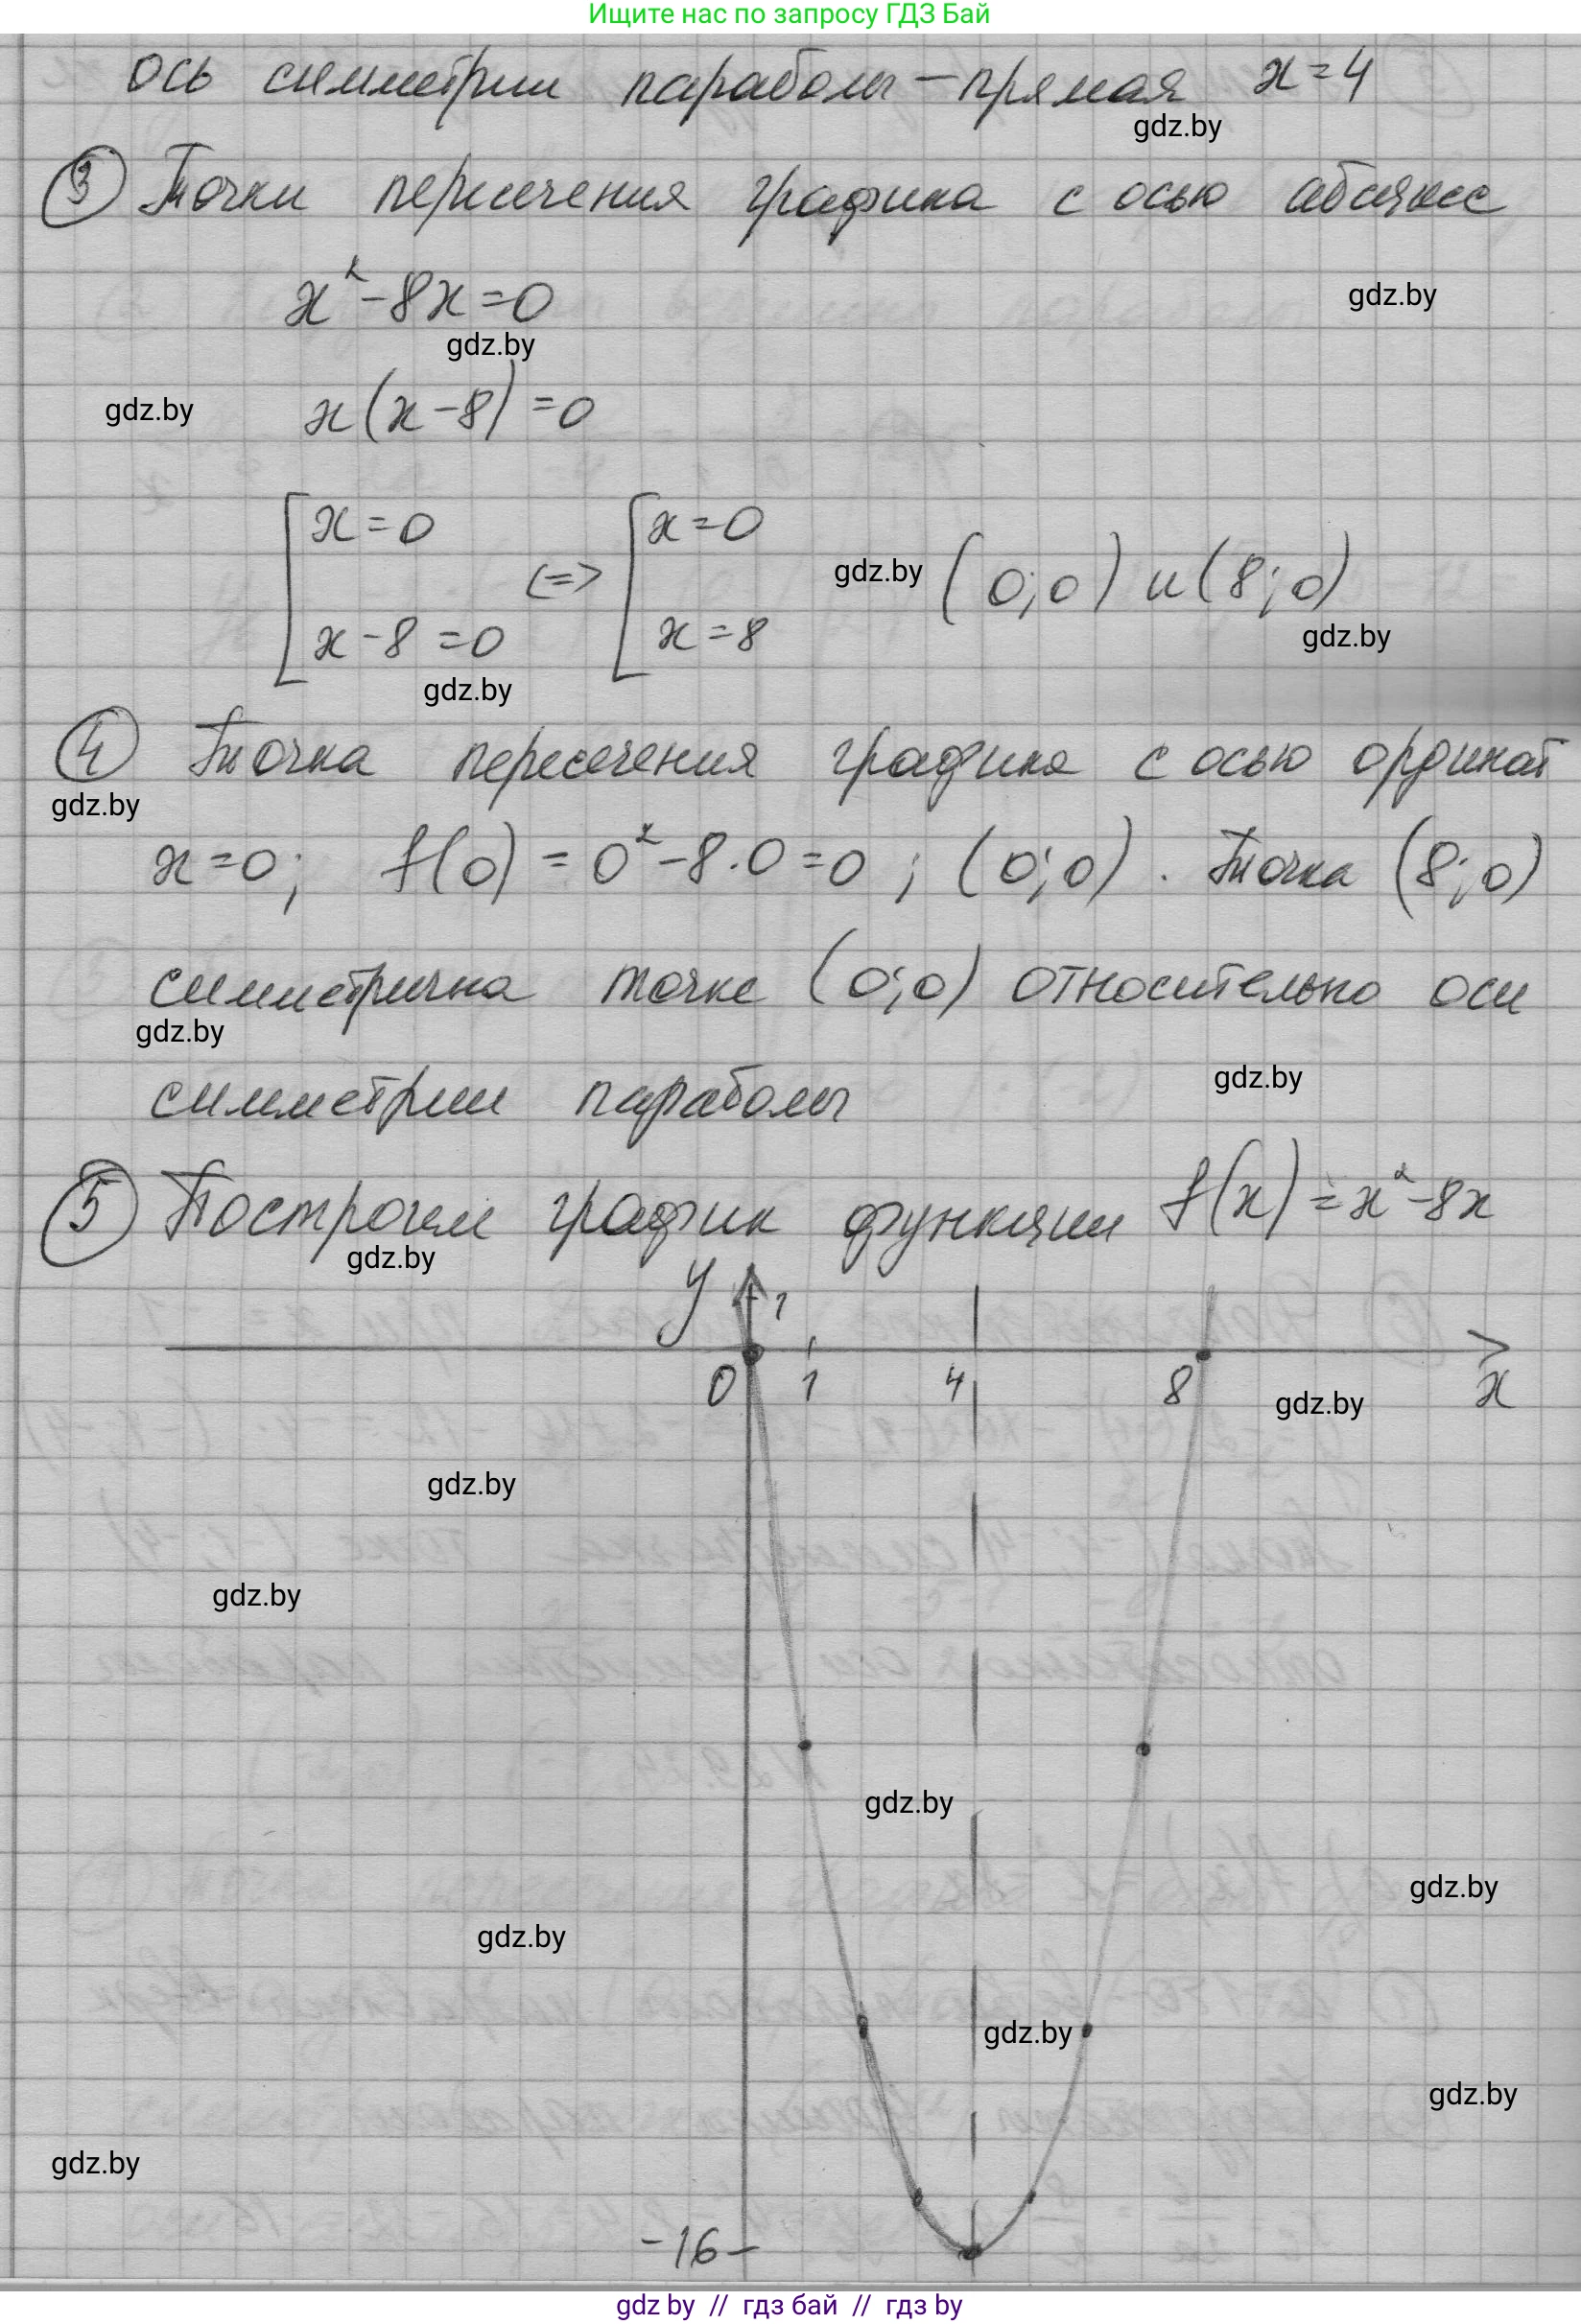 Ищите нас по запросу ГДЗ Бай
ось симметрии параболы – прямая x=4
gdz.by
③ Точки пересечения графика с осью абсцисс
x²-8x=0
gdz.by
gdz.by
gdz.by x(x-8)=0
[x=0 <=> [x=0
gdz.by (0;0) и (8;0)
x-8=0 x=8
gdz.by
gdz.by
④ Точка пересечения графика с осью ординат
gdz.by
x=0; f(0)=0²-8·0=0; (0;0). Точка (8;0)
симметрична точке (0;0) относительно оси
gdz.by
gdz.by
симметрии параболы
⑤ Построим график функции f(x)=x²-8x
gdz.by
y 1
0 1 4 8 x
gdz.by
gdz.by
gdz.by
gdz.by
gdz.by
gdz.by
gdz.by
gdz.by
gdz.by
-16
gdz by // гдз бай // гдз by